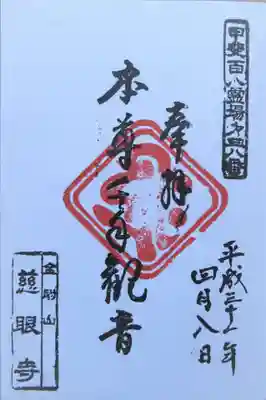 甲斐百八霊場第四八番
奉拝
平成三十一年
四月八日
本尊千手觀音
金剛山
慈眼寺